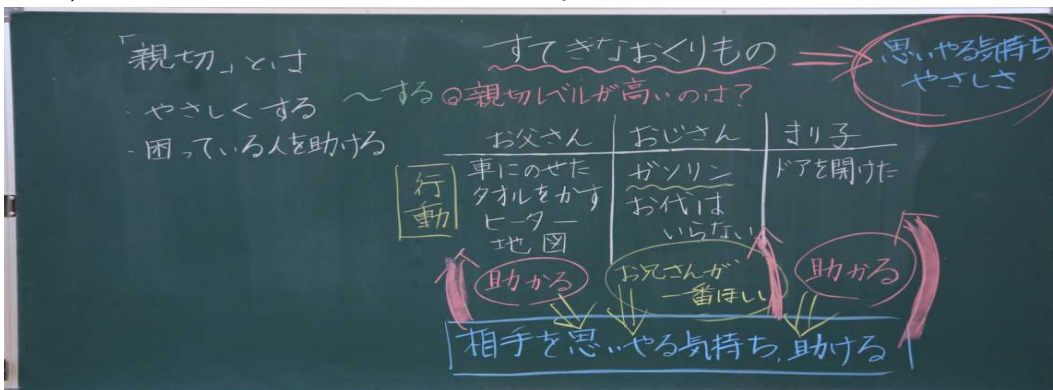 「親切」とは
・やさしくする
・困っている人を助ける
すてきなおくりもの
思いやる気持ち
やさしさ
～する ◎親切レベルが高いのは?
お父さん おじさん まり子
行動
車にのせた
タオルをかす
ヒーター
地図
ガソリン
お代は
いらない
ドアを開けた
助かる
お兄さんが
一番ほしい
助かる
相手を思いやる気持ち、助ける